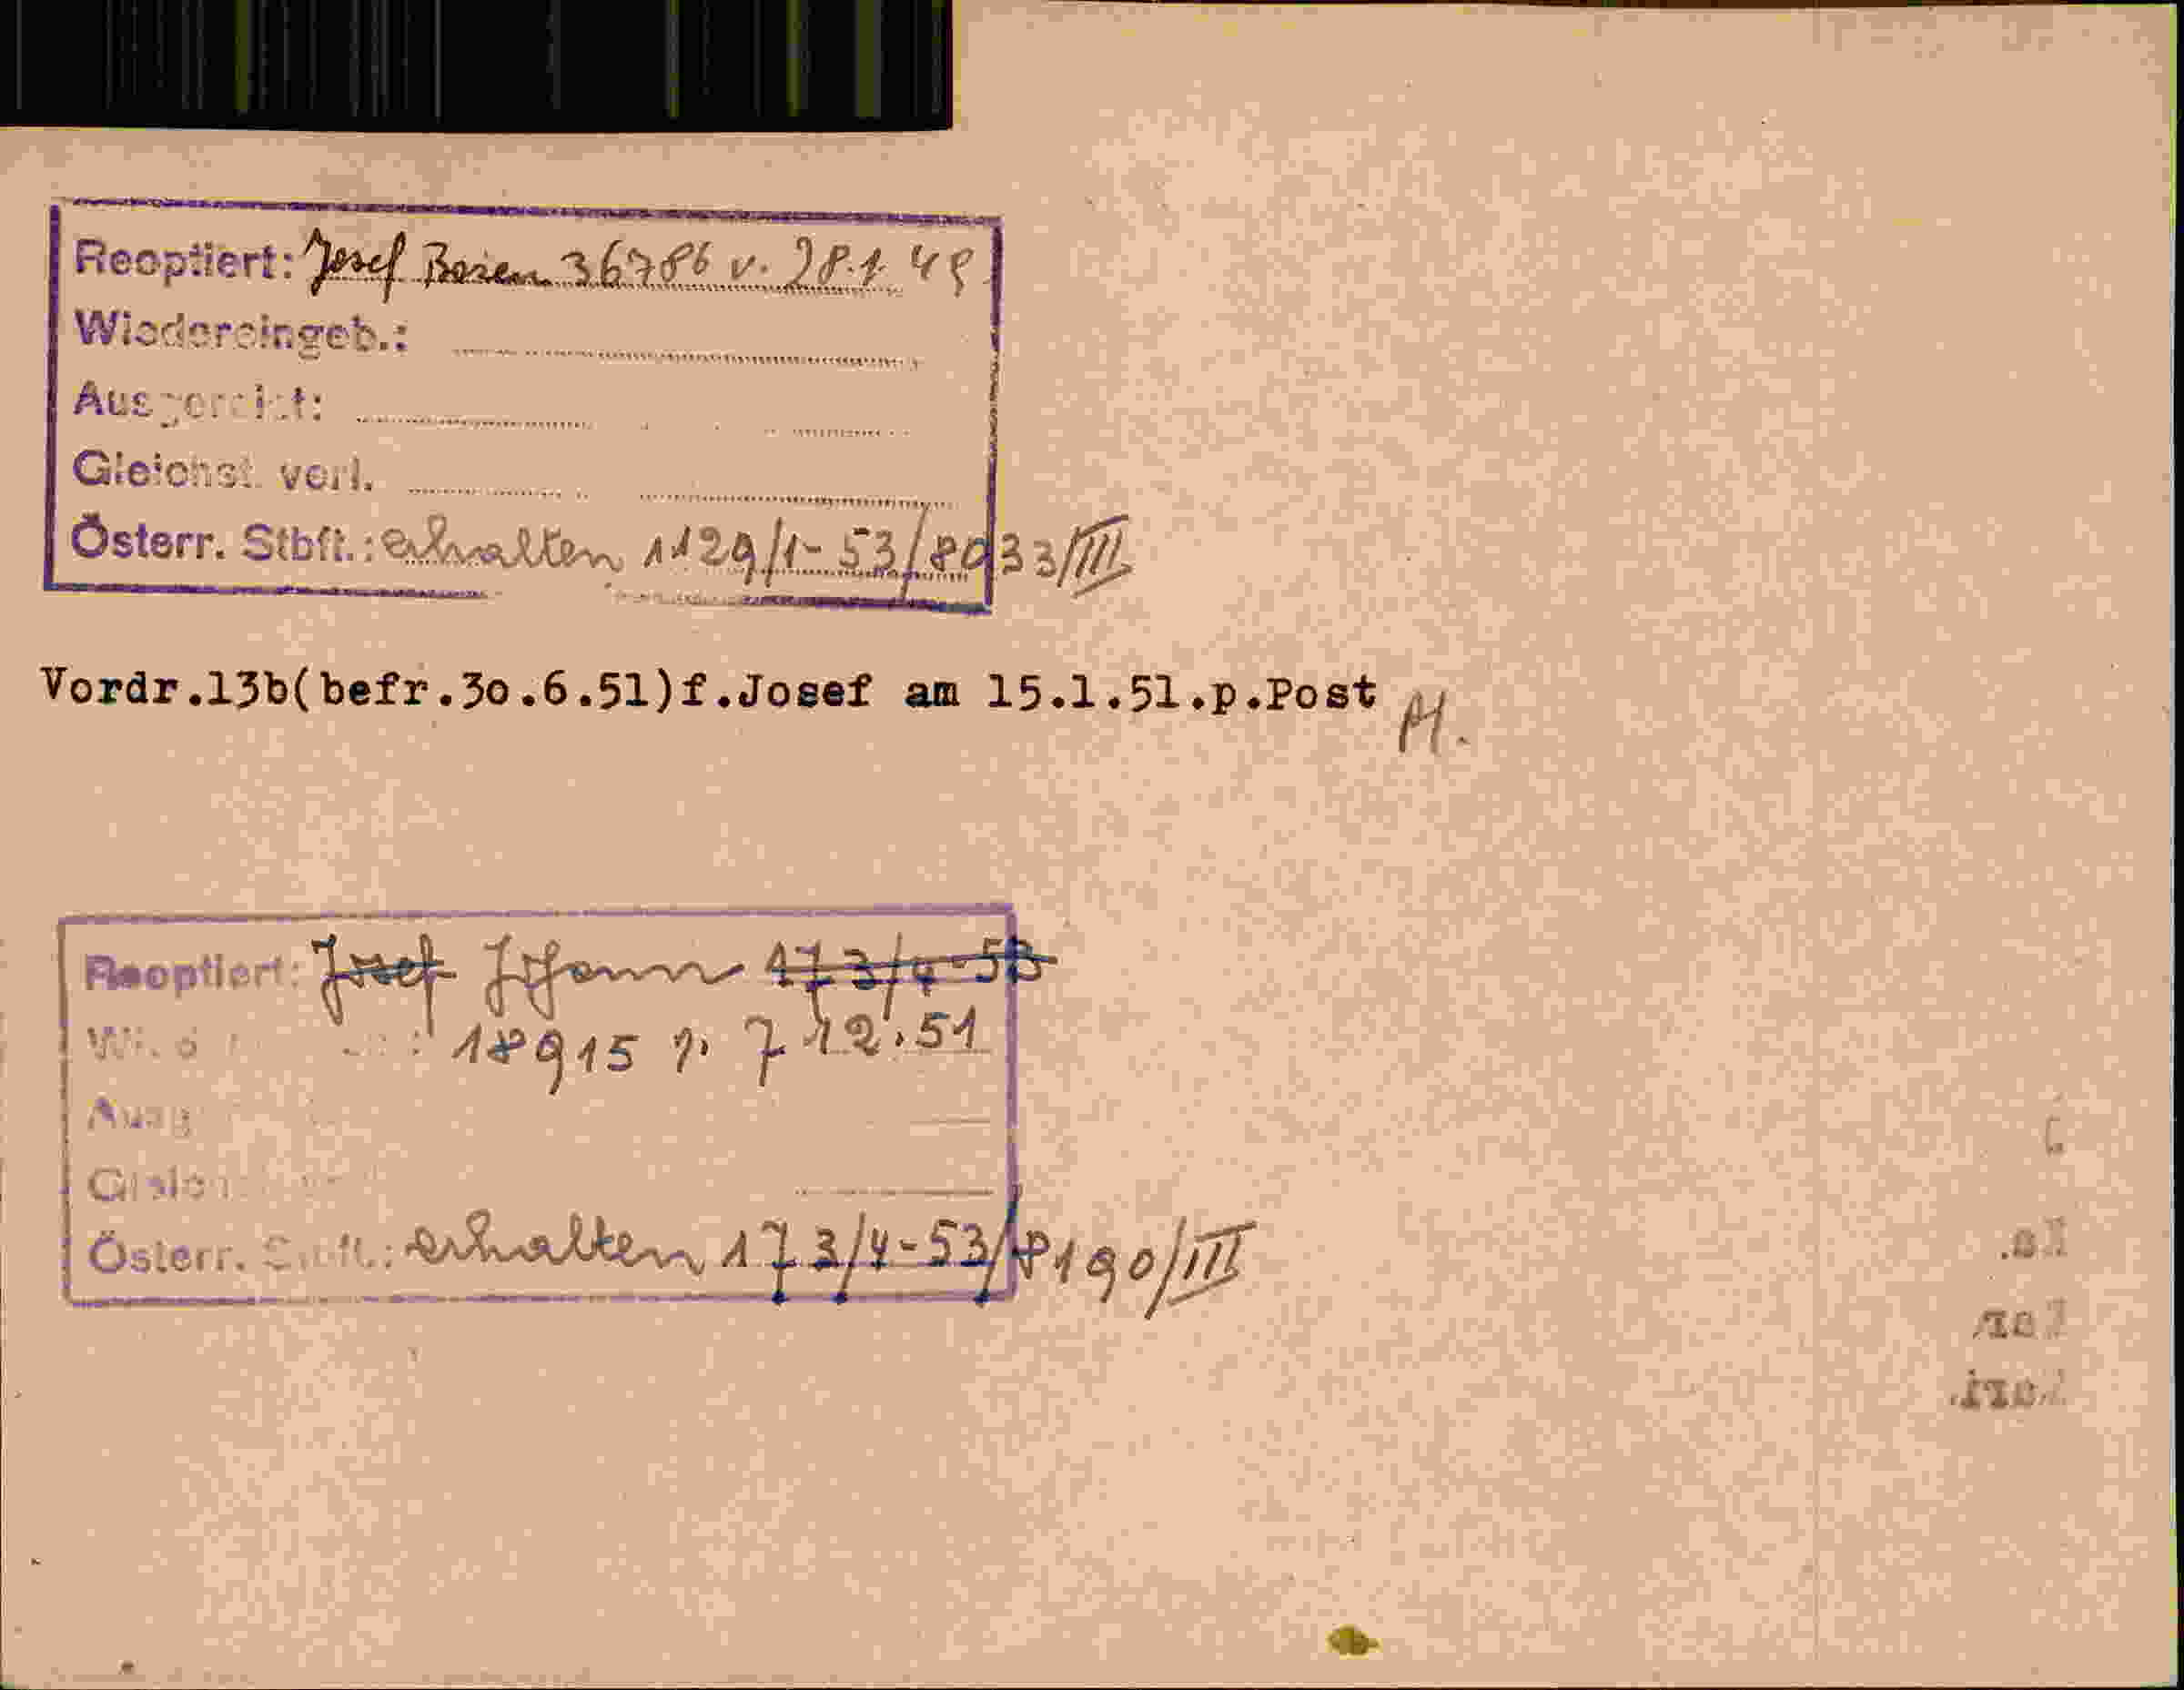 Reoptiert: Josef Bozen 36786 v. 28.1.49
Wiedereingeb.:
Ausgereist:
Gleichst. verl.
Österr. Stbft.: erhalten 1129/1-53/8033/III
Vordr.13b(befr.3o.6.51)f.Josef am 15.1.51.p.Post
Reoptiert: Josef Johann 173/4-53
18915 v. 7 12.51
Österr. Stbft.: erhalten 173/4-53/8190/III